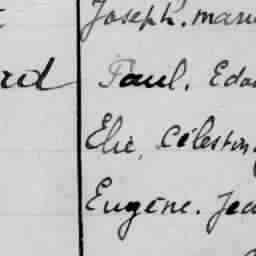 Joseph. marie
ard Paul. Edou
Elie. Célestin
Eugène. Jea